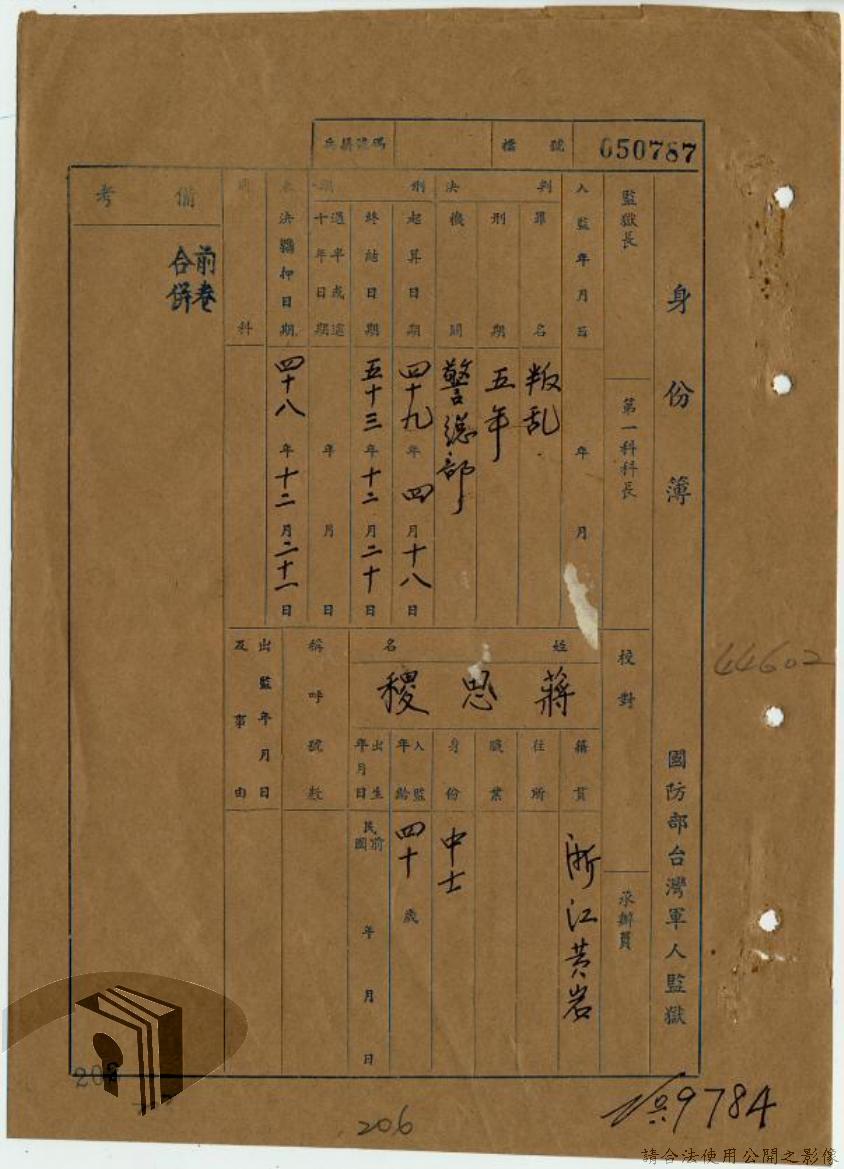 兵籍號碼
檔號
050787
身份簿
國防部台灣軍人監獄
監獄長
第一科科長
校對
承辦員
入監年月日
年月
判決刑期
罪名
叛乱
刑期
五年
機關
警总部
起算日期
四十九年四月十八日
終結日期
五十三年十二月二十日
過半或逾十年日期
年月日
未決羈押日期
四十八年十二月二十一日
前科
備考
前卷
合併
姓名
蔣思稷
籍貫
浙江黃岩
住所
職業
身份
中士
入監年齡
四十歲
出生年月日
民國前
年月日
稱呼號數
出監年月日
及事由
44602
206
9784
請合法使用公開之影像